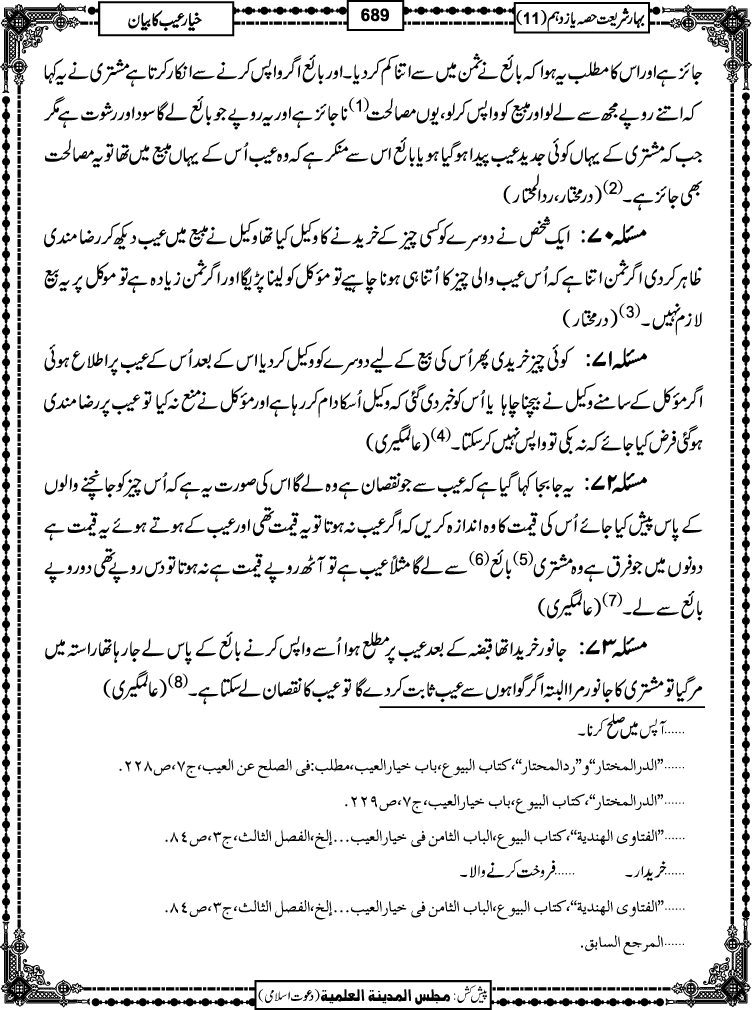 بہار شریعت حصہ یازدہم (11)
689
خیار عیب کا بیان
جائز ہے اور اس کا مطلب یہ ہوا کہ بائع نے ثمن میں سے اتنا کم کردیا۔ اور بائع اگر واپس کرنے سے انکار کرتا ہے مشتری نے یہ کہا
کہ اتنے روپے مجھ سے لے لو اور مبیع کو واپس کر لو، یوں مصالحت (1) ناجائز ہے اور یہ روپے جو بائع لے گا سود اور رشوت ہے مگر
جب کہ مشتری کے یہاں کوئی جدید عیب پیدا ہوگیا ہو یا بائع اس سے منکر ہے کہ وہ عیب اُس کے یہاں مبیع میں تھا تو یہ مصالحت
بھی جائز ہے۔ (2) (درمختار، ردالمحتار)
مسئلہ ۷۰: ایک شخص نے دوسرے کو کسی چیز کے خریدنے کا وکیل کیا تھا وکیل نے مبیع میں عیب دیکھ کر رضامندی
ظاہر کردی اگر ثمن اتنا ہے کہ اُس عیب والی چیز کا اُتنا ہی ہونا چاہیے تو مؤکل کو لینا پڑیگا اور اگر ثمن زیادہ ہے تو موکل پر یہ بیع
لازم نہیں۔ (3) (درمختار)
مسئلہ ۷۱: کوئی چیز خریدی پھر اُس کی بیع کے لیے دوسرے کو وکیل کردیا اس کے بعد اُس کے عیب پر اطلاع ہوئی
اگر مؤکل کے سامنے وکیل نے بیچنا چاہا یا اُس کو خبر دی گئی کہ وکیل اُسکا دام کر رہا ہے اور مؤکل نے منع نہ کیا تو عیب پر رضامندی
ہوگئی فرض کیا جائے کہ نہ بکی تو واپس نہیں کرسکتا۔ (4) (عالمگیری)
مسئلہ ۷۲: یہ جا بجا کہا گیا ہے کہ عیب سے جو نقصان ہے وہ لے گا اس کی صورت یہ ہے کہ اُس چیز کو جانچنے والوں
کے پاس پیش کیا جائے اُس کی قیمت کا وہ اندازہ کریں کہ اگر عیب نہ ہوتا تو یہ قیمت تھی اور عیب کے ہوتے ہوئے یہ قیمت ہے
دونوں میں جو فرق ہے وہ مشتری (5) بائع (6) سے لے گا مثلاً عیب ہے تو آٹھ روپے قیمت ہے نہ ہوتا تو دس روپے تھی دو روپے
بائع سے لے۔ (7) (عالمگیری)
مسئلہ ۷۳: جانور خریدا تھا قبضہ کے بعد عیب پر مطلع ہوا اُسے واپس کرنے بائع کے پاس لے جا رہا تھا راستہ میں
مر گیا تو مشتری کا جانور مرا البتہ اگر گواہوں سے عیب ثابت کردے گا تو عیب کا نقصان لے سکتا ہے۔ (8) (عالمگیری)
......آپس میں صلح کرنا۔
......”الدرالمختار“و”ردالمحتار“،کتاب البیوع،باب خیارالعیب،مطلب:فی الصلح عن العیب،ج٧،ص٢٢٨.
......”الدرالمختار“،کتاب البیوع،باب خیارالعیب،ج٧،ص٢٢٩.
......”الفتاوی الهندیة“،کتاب البیوع،الباب الثامن فی خیارالعیب...إلخ،الفصل الثالث،ج٣،ص٨٤.
......خریدار۔ ......فروخت کرنے والا۔
......”الفتاوی الهندیة“،کتاب البیوع،الباب الثامن فی خیارالعیب...إلخ،الفصل الثالث،ج٣،ص٨٤.
......المرجع السابق.
پیش کش: مجلس المدینة العلمیة (دعوت اسلامی)